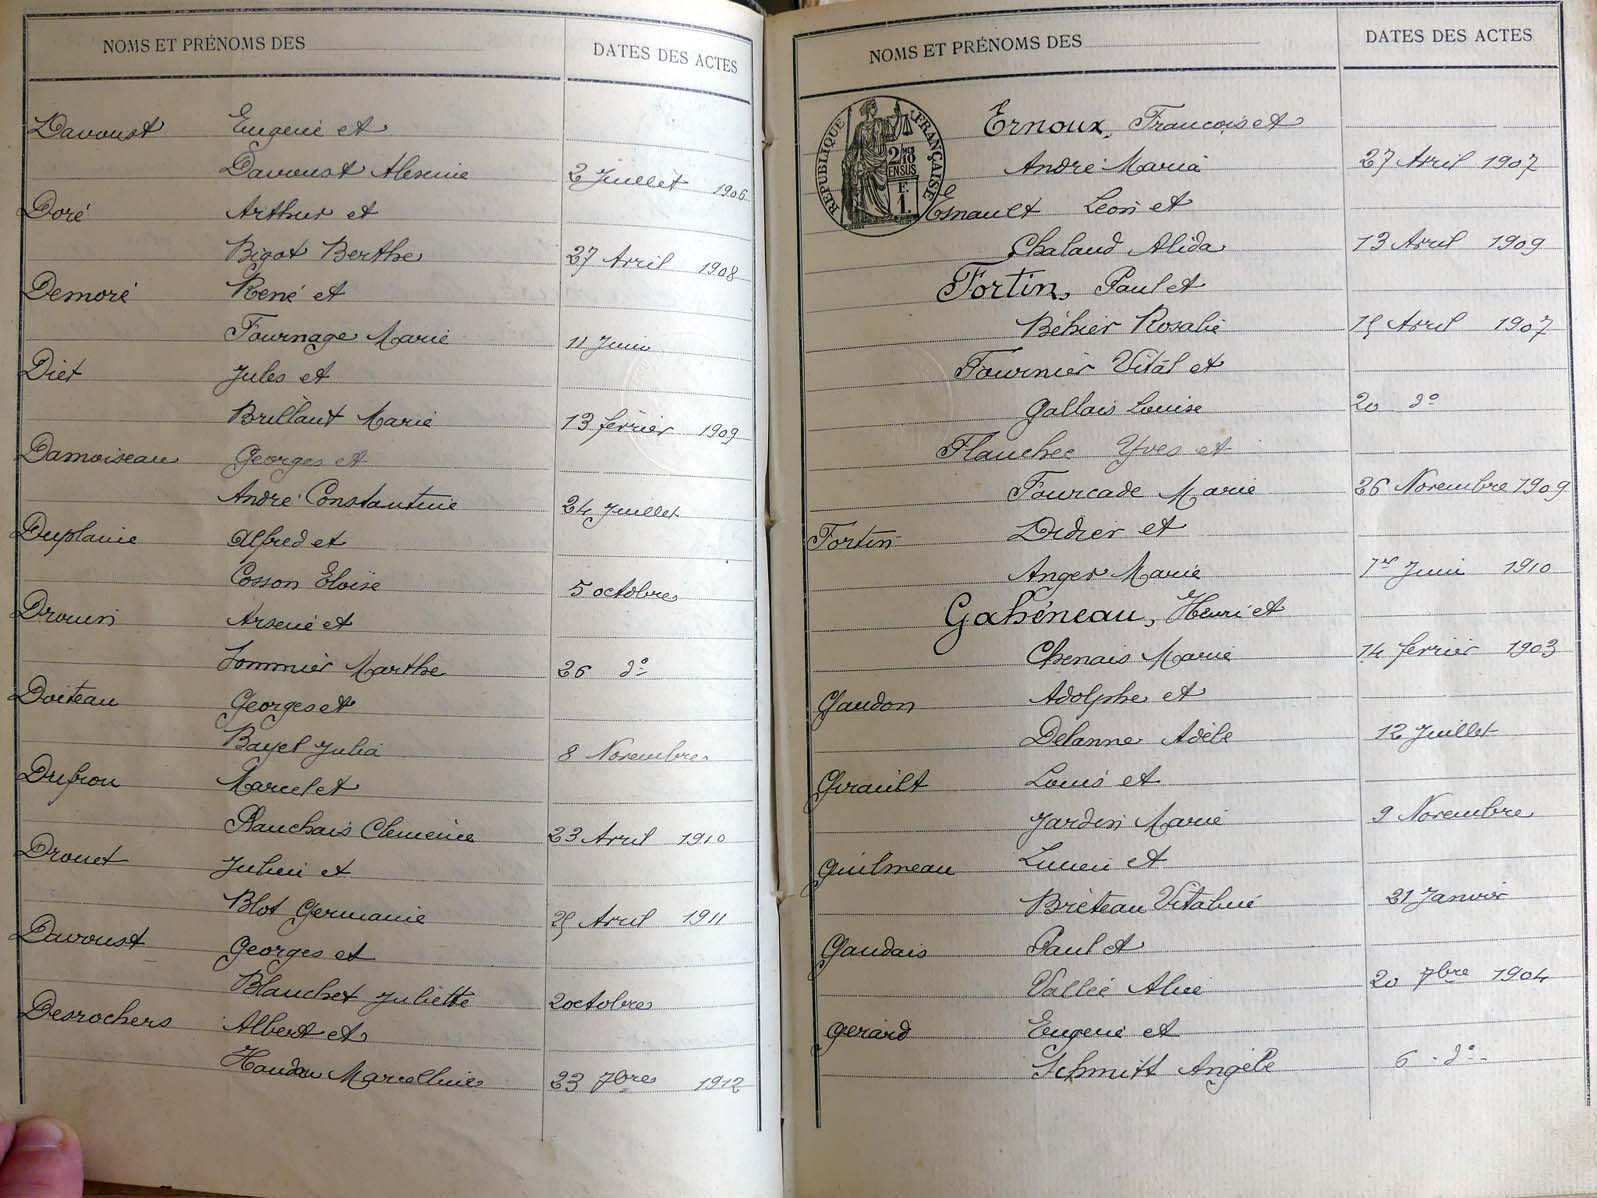 NOMS ET PRÉNOMS DES
DATES DES ACTES
Davoust Eugène et
Davoust Alexine 2 Juillet 1906
Doré Arthur et
Bigot Berthe 27 Avril 1908
Demoré René et
Fournage Marie 11 Juin
Diet Jules et
Brillant Marie 13 février 1909
Damoiseau Georges et
André Constantine 24 Juillet
Duplaine Alfred et
Cosson Eloïse 5 octobre
Drouin Arsène et
Sommier Marthe 26 do
Doiteau Georges et
Bayel Julia 8 Novembre
Dufrou Marcel et
Planchais Clémence 23 Avril 1910
Drouet Julien et
Blot Germaine 25 Avril 1911
Davoust Georges et
Blanchet Juliette 2 octobre
Desrochers Albert et
Marcelline 23 7bre 1912
NOMS ET PRÉNOMS DES
DATES DES ACTES
RÉPUBLIQUE FRANÇAISE
2/10
EN SUS
F.
1.
Ernoux, François et
André Maria 27 Avril 1907
Esnault Léon et
Chaland Alida 13 Avril 1909
Fortin, Paul et
Béhier Rosalie 15 Avril 1907
Fournier Vital et
Gallais Louise 20 do
Flanchec Yves et
Fourcade Marie 26 Novembre 1909
Fortin Didier et
Anger Marie 1er Juin 1910
Gahéneau, Henri et
Chenais Marie 14 février 1903
Gaudon Adolphe et
Delanne Adèle 12 Juillet
Girault Louis et
Jardin Marie 9 Novembre
Guilmeau Lucien et
Bréteau Vitaline 21 Janvier
Gaudais Paul et
Vallée Alice 20 7bre 1904
Gérard Eugène et
Schmitt Angèle 6 - do -